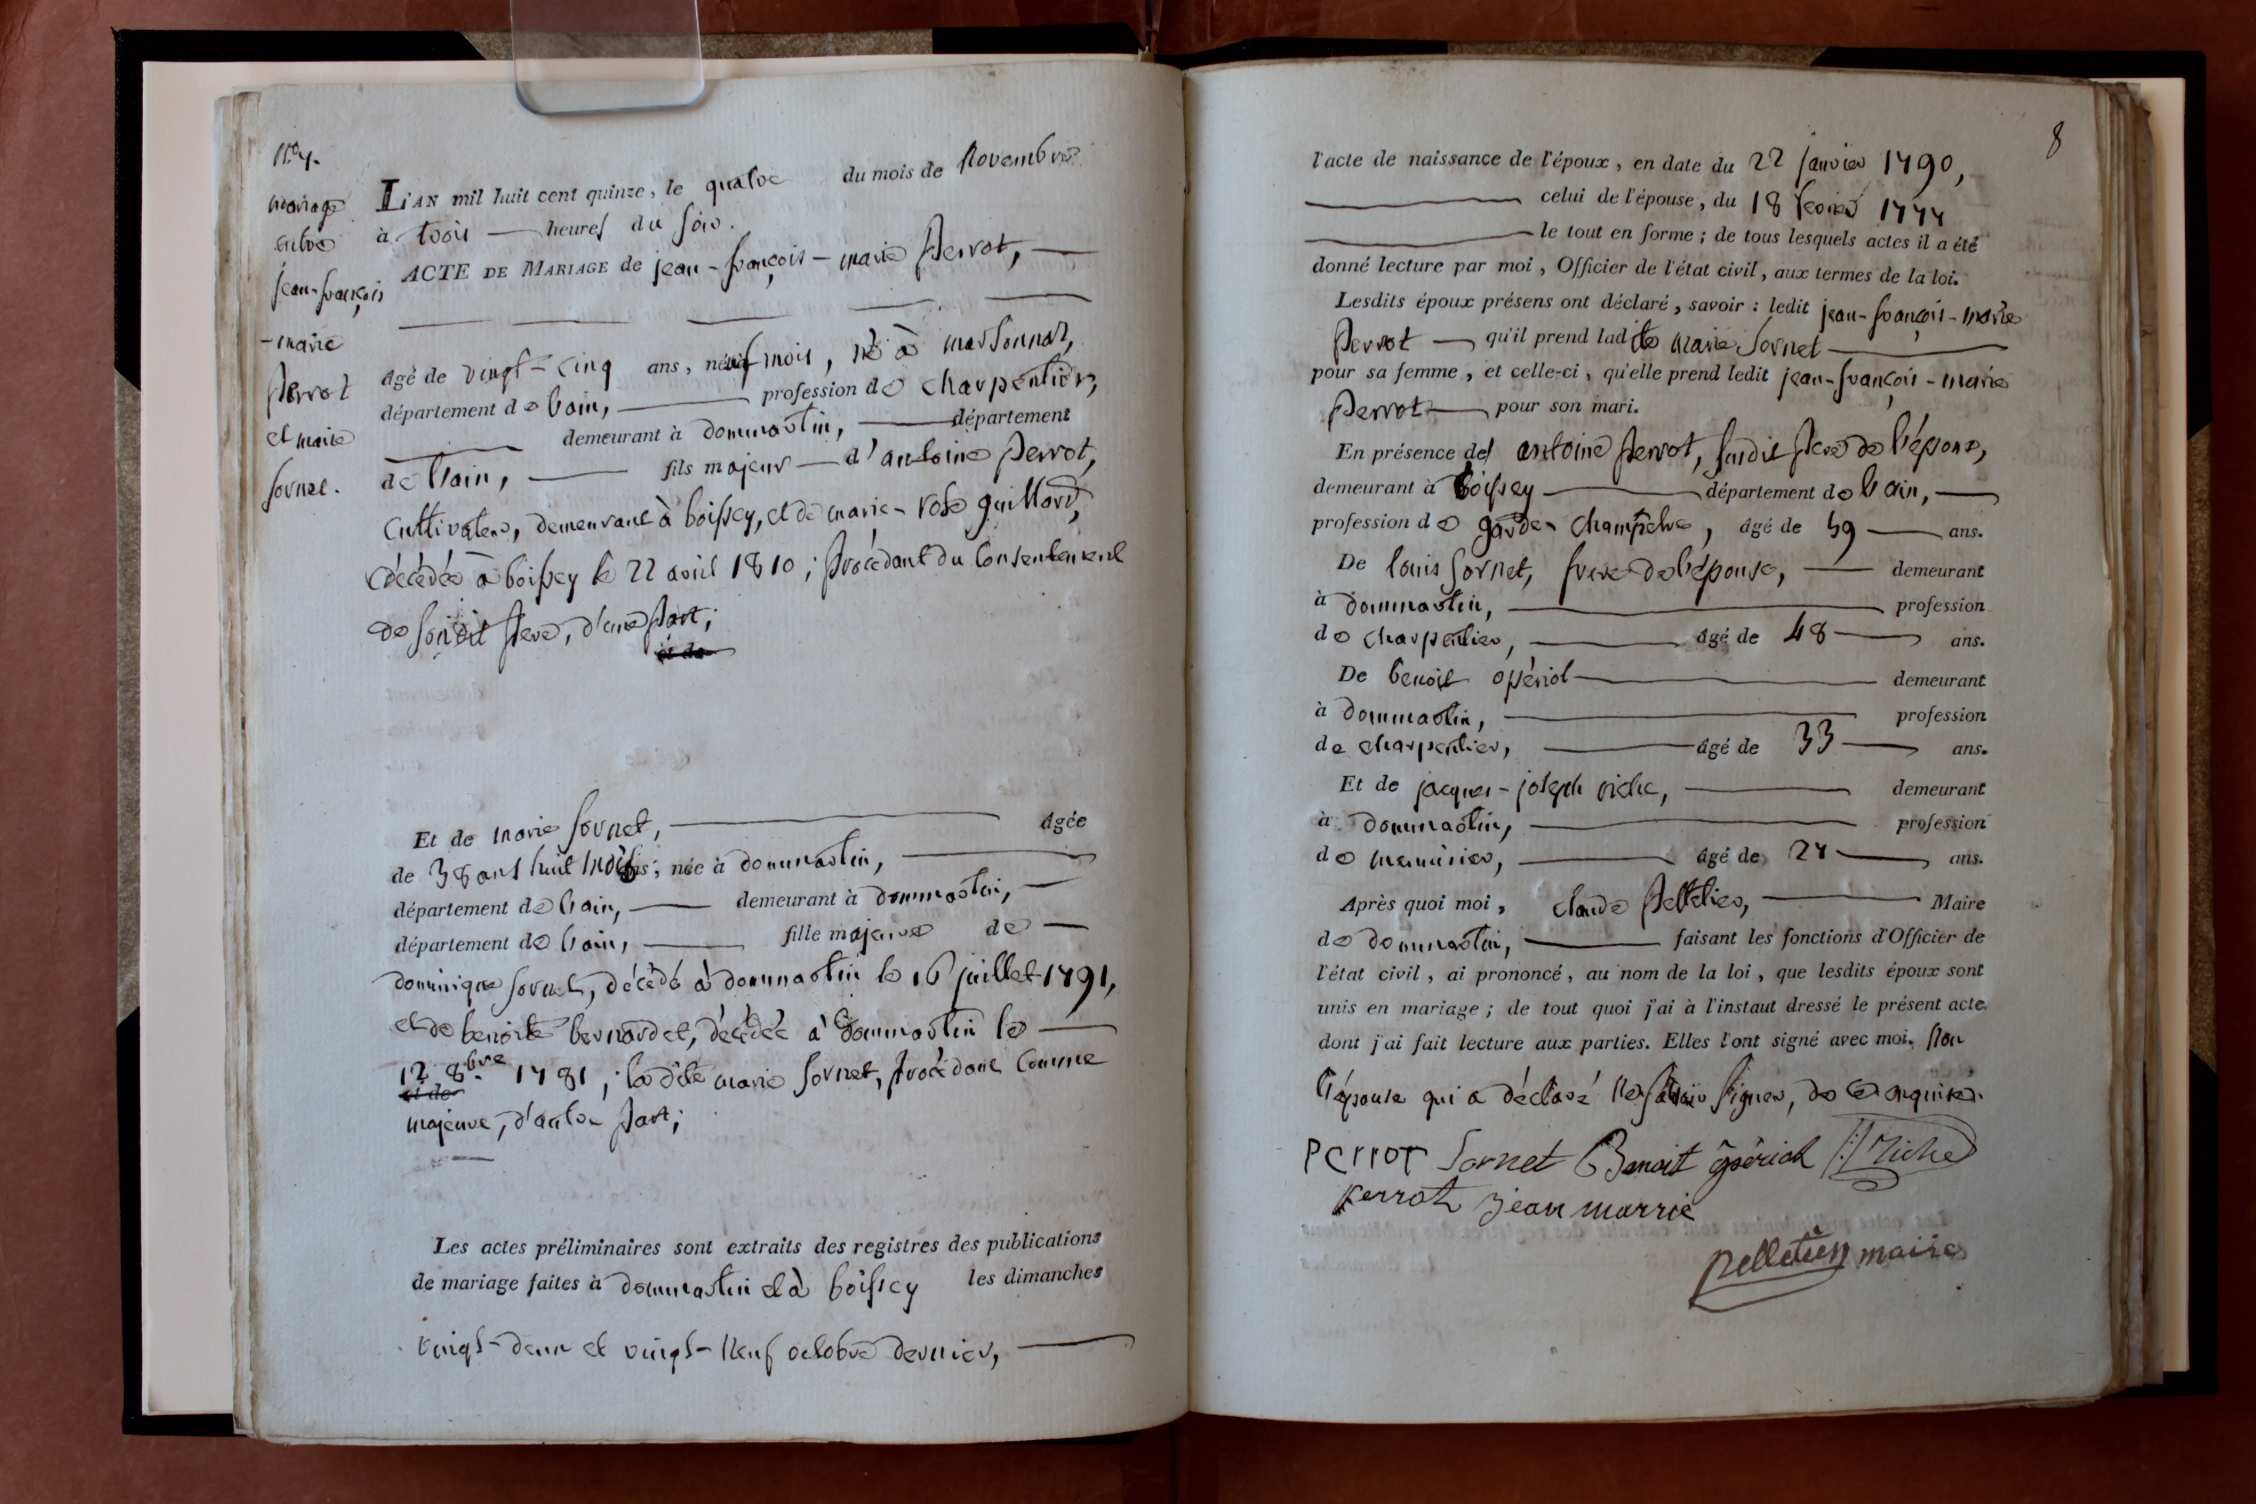 N.º 7.
mariage
entre
jean-françois
-marie
perrot
et marie
sornet.
L'AN mil huit cent quinze, le quatre du mois de novembre
à trois heures du soir.
ACTE DE MARIAGE de jean-françois-marie perrot,
âgé de vingt-cinq ans, neuf mois, né à marsonnaz,
département de l'ain, profession de charpentier,
demeurant à dommartin, département
de l'ain, fils majeur d'antoine perrot,
cultivateur, demeurant à boissey, et de marie-rose guillard,
décédée à boissey le 22 avril 1810; procédant du consentement
de son dit père, d'une part;
et de
Et de marie sornet, âgée
de 38 ans huit mois; née à dommartin,
département de l'ain, demeurant à dommartin,
département de l'ain, fille majeure de
dominique sornet, décédé à dommartin le 16 juillet 1791,
et de benoite bernardet, décédée à dommartin le
12 8bre 1781; la dite marie sornet, procédant comme
et de
majeure, d'autre part;
Les actes préliminaires sont extraits des registres des publications
de mariage faites à dommartin et à boissey les dimanches
vingt-deux et vingt-neuf octobre dernier,
8
l'acte de naissance de l'époux, en date du 22 janvier 1790,
celui de l'épouse, du 18 février 1777
le tout en forme; de tous lesquels actes il a été
donné lecture par moi, Officier de l'état civil, aux termes de la loi.
Lesdits époux présens ont déclaré, savoir: ledit jean-françois-marie
perrot qu'il prend ladite marie sornet
pour sa femme, et celle-ci, qu'elle prend ledit jean-françois-marie
perrot pour son mari.
En présence des antoine perrot, susdit père de l'époux,
demeurant à boissey département de l'ain,
profession de garde-champêtre, âgé de 59 ans.
De louis sornet, frère de l'épouse, demeurant
à dommartin, profession
de charpentier, âgé de 48 ans.
De benoit opériol demeurant
à dommartin, profession
de charpentier, âgé de 33 ans.
Et de jacques-joseph miche, demeurant
à dommartin, profession
de menuisier, âgé de 27 ans.
Après quoi moi, claude pelletier, Maire
de dommartin, faisant les fonctions d'Officier de
l'état civil, ai prononcé, au nom de la loi, que lesdits époux sont
unis en mariage; de tout quoi j'ai à l'instant dressé le présent acte
dont j'ai fait lecture aux parties. Elles l'ont signé avec moi. non
l'épouse qui a déclaré ne savoir signer, de ce enquise.
Perrot Sornet Benoit opériol Miche
perrot jean marrie
pelletier maire